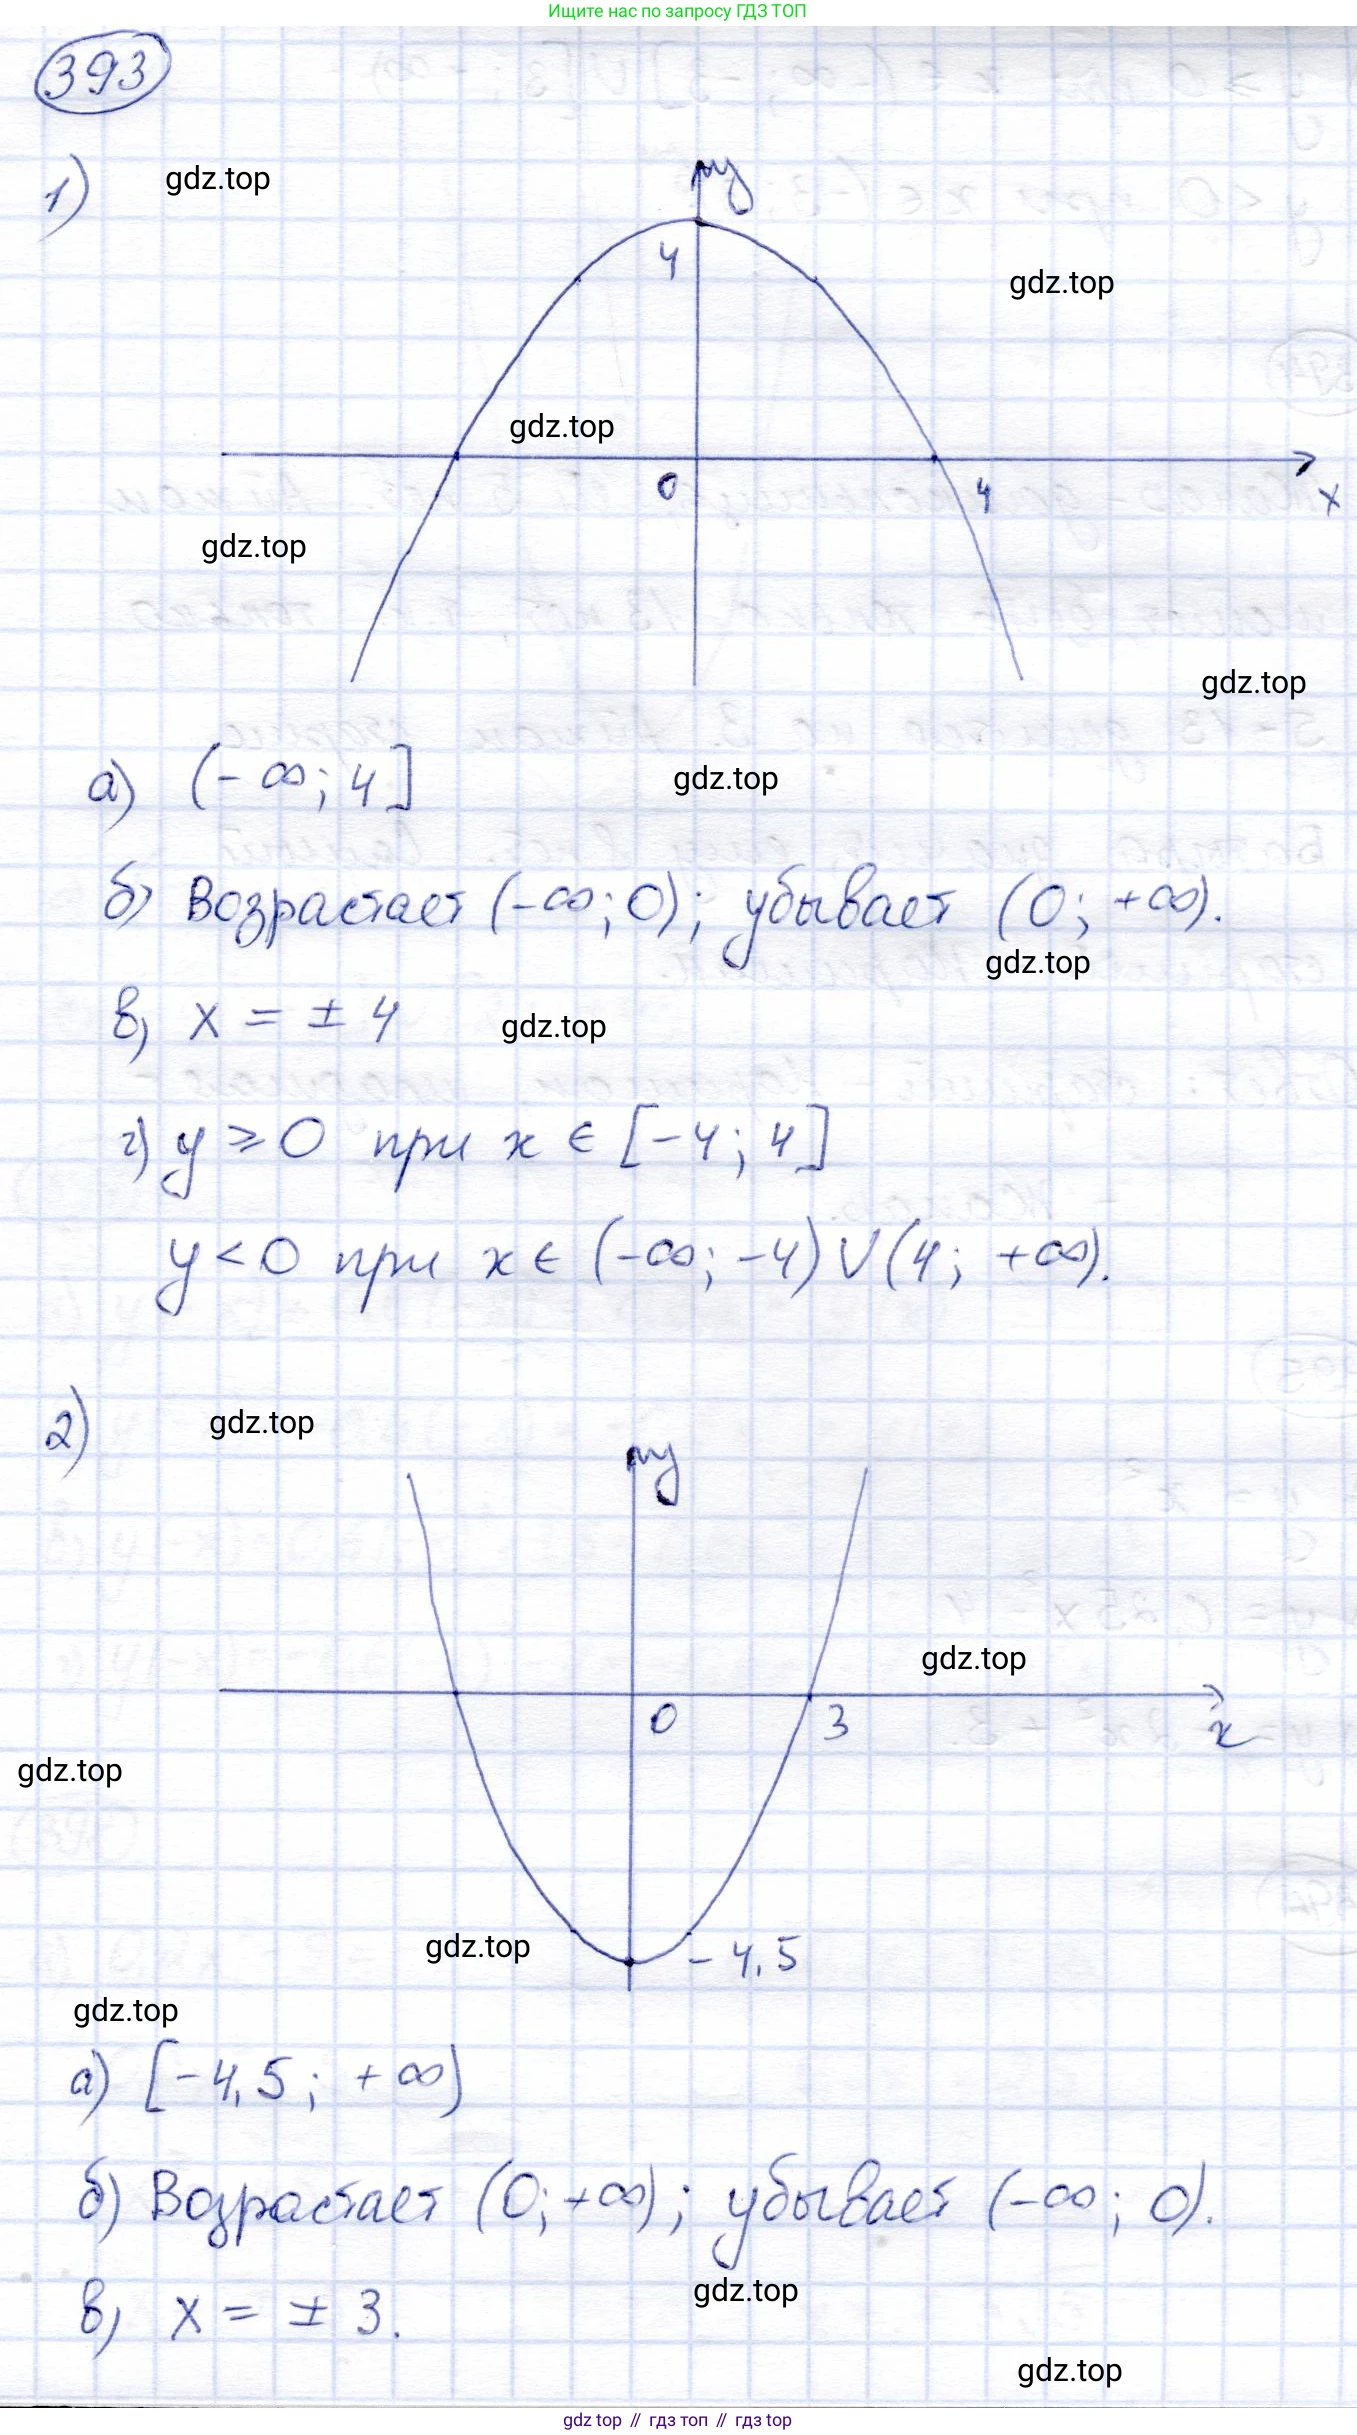 Ищите нас по запросу ГДЗ ТОП
393
1)
gdz.top
y
4
gdz.top
gdz.top
0
4
x
gdz.top
gdz.top
а) (-∞; 4]
gdz.top
б) Возрастает (-∞; 0); убывает (0; +∞).
gdz.top
в) x = ± 4
gdz.top
г) y ⩾ 0 при x ∈ [-4; 4]
y < 0 при x ∈ (-∞; -4) ∪ (4; +∞).
2)
gdz.top
y
gdz.top
0
3
x
gdz.top
gdz.top
- 4,5
gdz.top
а) [-4,5; +∞)
б) Возрастает (0; +∞); убывает (-∞; 0).
gdz.top
в) x = ± 3.
gdz.top
gdz top // гдз топ // гдз top